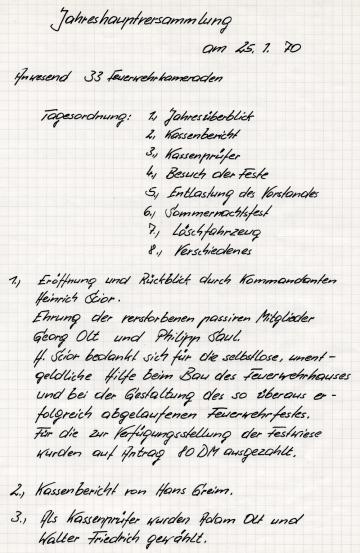 Jahreshauptversammlung
am 25. 1. 70
Anwesend 33 Feuerwehrkameraden
Tagesordnung: 1., Jahresüberblick
2., Kassenbericht
3., Kassenprüfer
4., Besuch der Feste
5., Entlastung des Vorstandes
6., Sommernachtsfest
7., Löschfahrzeug
8., Verschiedenes
1., Eröffnung und Rückblick durch Kommandanten
Heinrich Scior.
Ehrung der verstorbenen passiven Mitglieder
Georg Olt und Philipp Saul.
H. Scior bedankt sich für die selbstlose, unent-
geldliche Hilfe beim Bau des Feuerwehrhauses
und bei der Gestaltung des so überaus er-
folgreich abgelaufenen Feuerwehrfestes.
Für die zur Verfügungsstellung der Festwiese
wurden auf Antrag 80 DM ausgezahlt.
2., Kassenbericht von Hans Greim.
3., Als Kassenprüfer wurden Adam Olt und
Walter Friedrich gewählt.